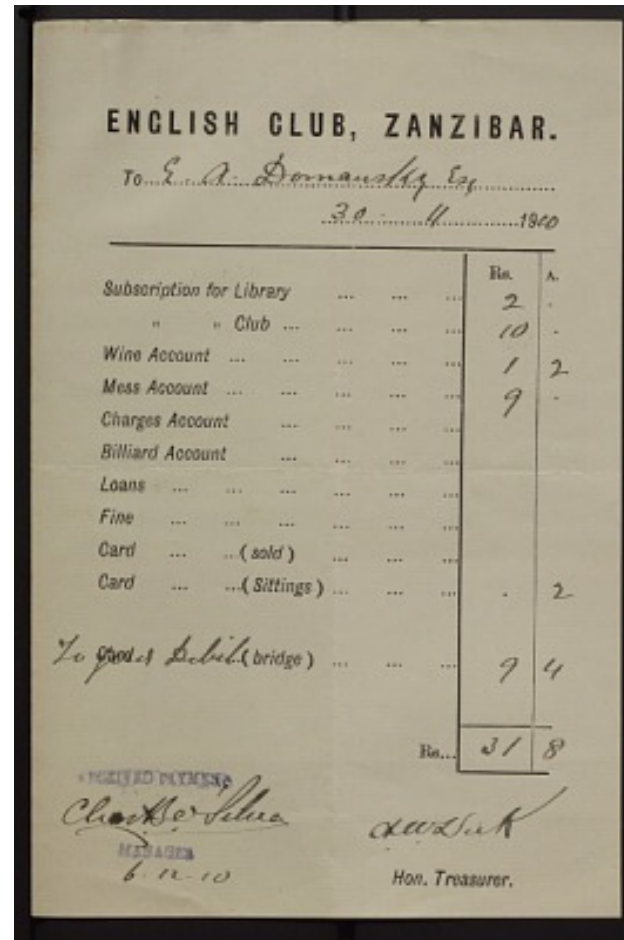 ENGLISH CLUB, ZANZIBAR.
To E. A. Domansky Esq
30 - 11 1910
Rs. A.
Subscription for Library ... ... ... 2 -
" " Club ... ... ... ... 10 -
Wine Account ... ... ... ... ... 1 2
Mess Account ... ... ... ... ... 9 -
Charges Account ... ... ... ...
Billiard Account ... ... ... ...
Loans ... ... ... ... ... ...
Fine ... ... ... ... ... ...
Card ... ...(sold) ... ... ...
Card ... ...(Sittings) ... ... ... . 2
To your Debit (bridge) ... ... ... 9 4
Rs... 31 8
RECEIVED PAYMENT
MANAGER
6-12-10
Hon. Treasurer.